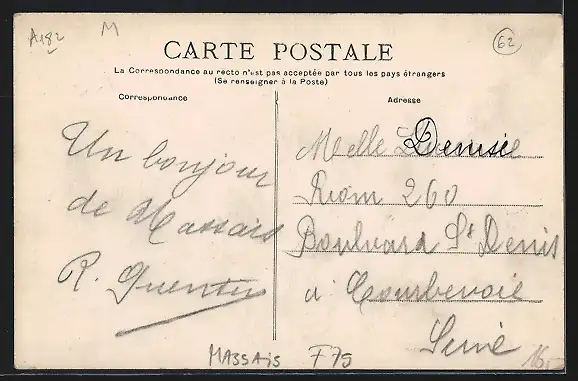 A182
M
62
CARTE POSTALE
La Correspondance au recto n'est pas acceptée par tous les pays étrangers
(Se renseigner à la Poste)
Correspondance
Un bonjour
de Massais
R. Quentin
Adresse
Melle Denise
Riom 260
Boulevard St Denis
à Courbevoie
Seine
MASSAIS F79